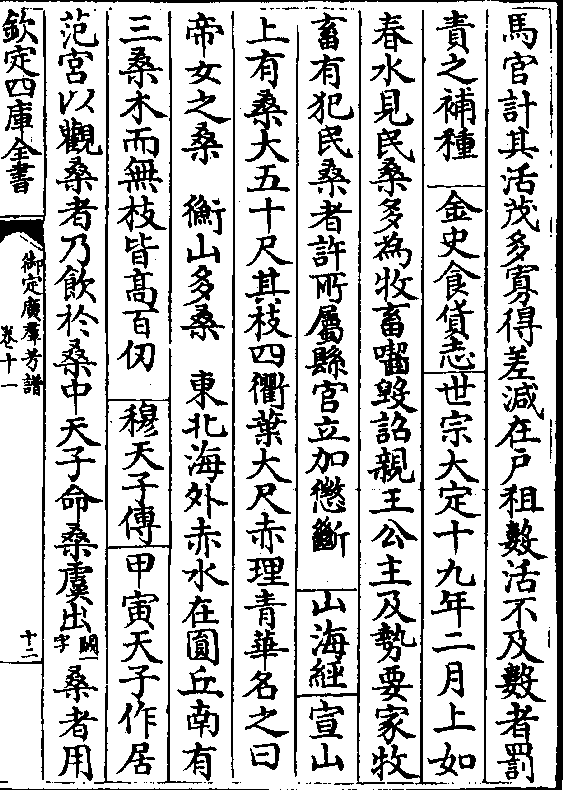 馬官計其活茂多寡得差減在戸租數活不及數者罰
責之補種　金史食貨志世宗大定十九年二月上如
春水見民桑多為牧畜囓毀詔親王公主及勢要家牧
畜有犯民桑者許所屬縣官立加懲斷　山海經宣山
上有桑大五十尺其枝四衢葉大尺赤理青華名之曰
帝女之桑　衡山多桑　東北海外赤水在圓丘南有
三桑木而無枝皆高百仞　穆天子傳甲寅天子作居
范宮以觀桑者乃飲於桑中天子命桑虞出闕一字桑者用
欽定四庫全書
御定廣羣芳譜
卷十一
十二